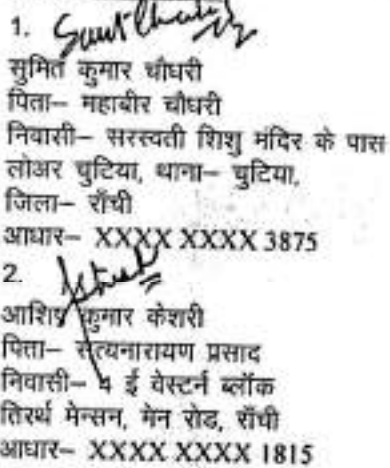 1. Sumit Chaudhary
सुमित कुमार चौधरी
पिता– महाबीर चौधरी
निवासी– सरस्वती शिशु मंदिर के पास
लोअर चुटिया, थाना– चुटिया,
जिला– राँची
आधार– XXXX XXXX 3875
2.
आशिष कुमार केशरी
पित्ता– सत्यनारायण प्रसाद
निवासी– 4 ई वेस्टर्न ब्लॉक
तिरथ मेन्सन, मेन रोड, राँची
आधार– XXXX XXXX 1815